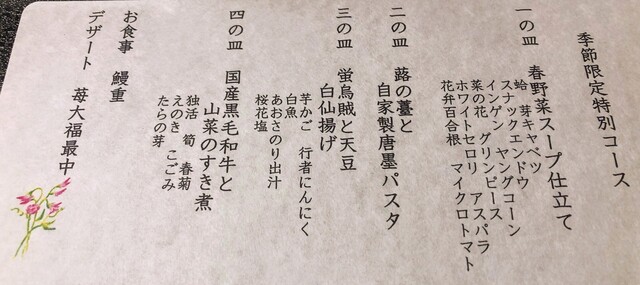 季節限定特別コース
一の皿　春野菜スープ仕立て
蛤　芽キャベツ
スナックエンドウ
インゲン　ヤングコーン
菜の花　グリンピース
ホワイトセロリ　アスパラ
花弁百合根　マイクロトマト
二の皿　蕗の薹と
自家製唐墨パスタ
三の皿　蛍烏賊と天豆
白仙揚げ
芋かご　行者にんにく
白魚
あおさのり出汁
桜花塩
四の皿　国産黒毛和牛と
山菜のすき煮
独活　筍　春菊
えのき　こごみ
たらの芽
お食事　鰻重
デザート　苺大福最中